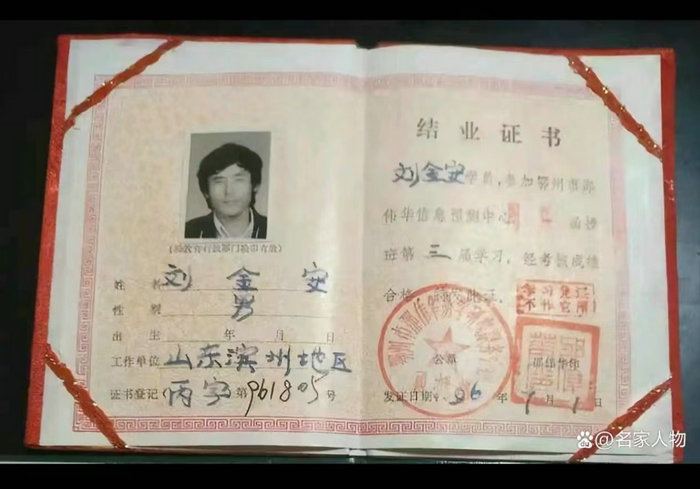 结业证书
刘金安学员,参加鄂州市邵
伟华信息预测中心 函授
班第三届学习,经考核成绩
合格
学习凭证
不作它用
公章
邵伟华印
发证日期 96年 月1日
姓名 刘金安
性别 男
出生 年 月 日
工作单位 山东滨州地区
证书登记 丙字第961805号
名家人物